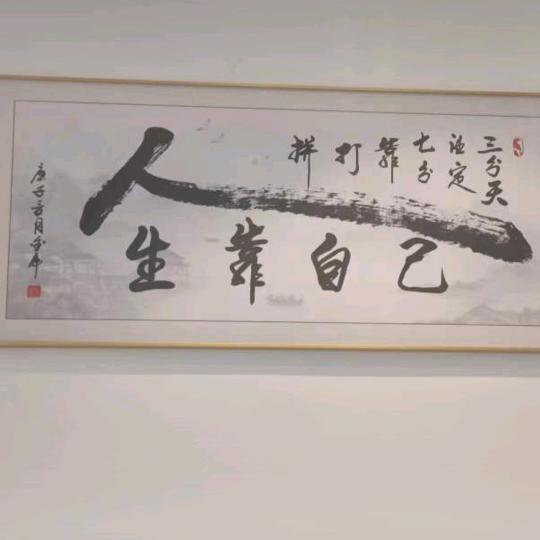 人生靠自己
三分天
注定
七分
靠
打
拼
庚子